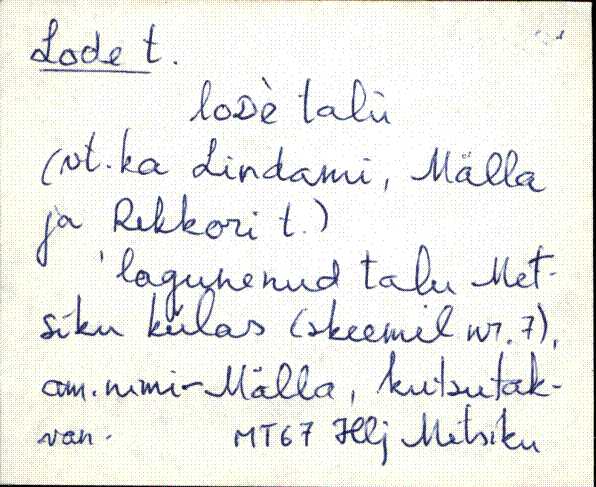 Lode t.
loDè talù
(vt. ka Lindami, Mälla
ja Rekkori t.)
'lagunenud talu Met-
siku külas (skeemil nr. 7),
am. nimi - Mälla, kutsutak-
van.    MT67 Hlj Metsiku